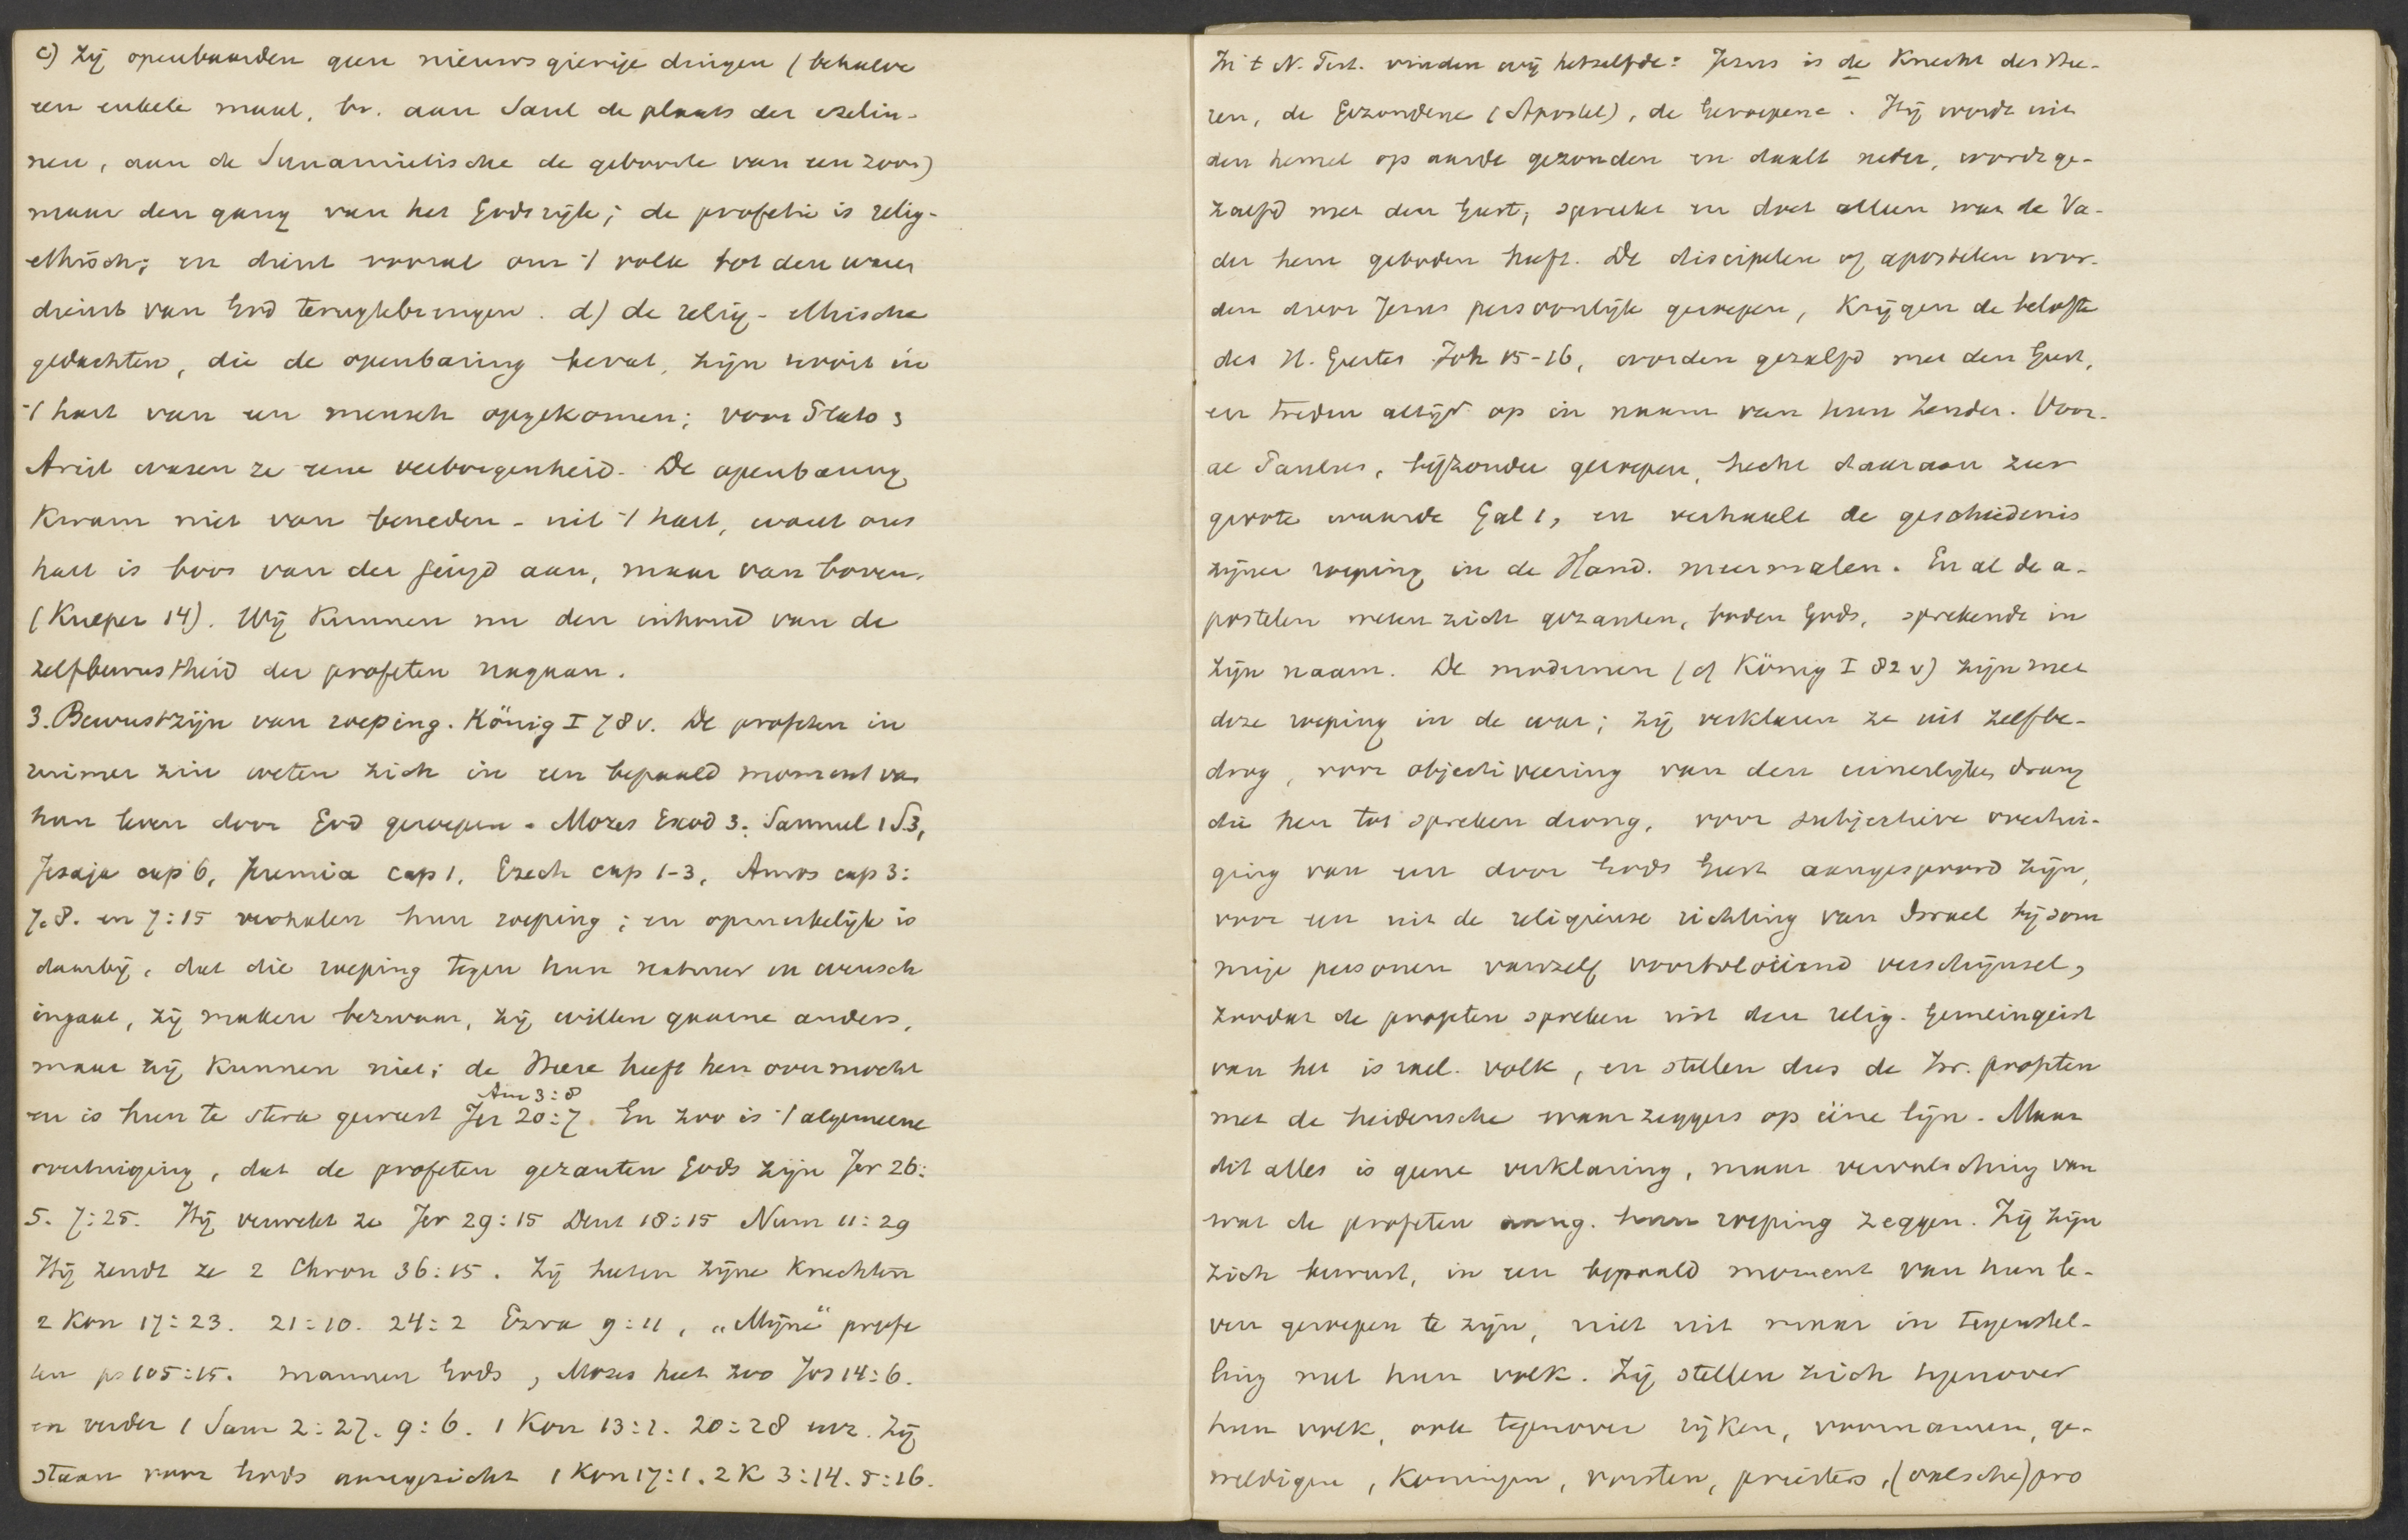 c) zij openbaarden geen nieuwsgierige dingen (behalve
een enkele maal, bv. aan Saul de plaats der ezelin-
nen, aan de Sunamietische de geboorte van een zoon)
maar den gang van het Godsrijk; de profetie is relig-
ethisch; en dient vooral om 't volk tot den waren
dienst van God terugtebrengen. d) de relig-ethische
gedachten, die de openbaring bevat, zijn nooit in
't hart van een mensch opgekomen; voor Plato &
Arist waren ze eene verborgenheid. De openbaring
kwam niet van beneden - uit 't hart, want ons
hart is boos van der jeugd aan, maar van boven.
(Kueper 14). Wij kunnen nu den inhoud van de
zelfbewustheid der profeten nagaan.
3. Bewustzijn van roeping. König I 78 v. De profeten in
ruimer zin weten zich in een bepaald moment van
hun leven door God geroepen. Mozes Exod 3. Samuel 1 S 3,
Jesaja cap 6, Jeremia cap 1, Ezech cap 1-3, Amos cap 3:
7.8. en 7:15 verhalen hun roeping; en opmerkelijk is
daarbij, dat die roeping tegen hun natuur en wensch
ingaat, zij maken bezwaar, zij willen gaarne anders,
maar zij kunnen niet; de Heere heeft hen overmocht
Am 3:8
en is hun te sterk geweest Jer 20:7. En zoo is 't algemeene
overtuiging, dat de profeten gezanten Gods zijn Jer 26:
5. 7:25. Hij verwekt ze Jer 29:15 Deut 18:15 Num 11:29
Hij zendt ze 2 Chron 36:15. Zij heeten zijne Knechten
2 Kon 17:23. 21:10. 24:2 Ezra 9:11, „Mijne“ profe
ten ps 105:15. mannen Gods, Mozes heet zoo Jos 14:6.
en verder 1 Sam 2:27. 9:6. 1 Kon 13:1. 20:28 enz. Zij
staan voor Gods aangezicht 1 Kon 17:1. 2 K 3:14. 5:16.
In 't N. Test. vinden wij hetzelfde: Jezus is de Knecht des Hee-
ren, de Gezondene (Apostel), de Geroepene. Hij wordt uit
den hemel op aarde gezonden en daalt neder, wordt ge-
zalfd met den Geest, spreekt en doet alleen wat de Va-
der hem geboden heeft. De discipelen of apostelen wor-
den door Jezus persoonlijk geroepen, krijgen de belofte
des H. Geestes Joh 15-16, worden gezalfd met den Geest,
en treden altijd op in naam van hun Zender. Voor-
al Paulus, bijzonder geroepen, hecht daaraan zeer
groote waarde Gal 1, en verhaalt de geschiedenis
zijner roeping in de Hand. meermalen. En al de a-
postelen weten zich gezanten, boden Gods, sprekende in
zijn naam. De modernen (cf König I 82 v) zijn met
deze roeping in de war; zij verklaren ze uit zelfbe-
drog, voor objectiveering van den innerlijken drang
die hen tot spreken drong, voor subjectieve overtui-
ging van een door Gods Geest aangespoord zijn,
voor een uit de religieuse richting van Israel bij som
mige personen vanzelf voortvloeiend verschijnsel,
zoodat de profeten spreken uit den relig. Gemeingeist
van het israel. volk, en stellen dus de Isr. profeten
met de heidensche waarzeggers op ééne lijn. Maar
dit alles is geene verklaring, maar vervalsching van
wat de profeten aang. hun roeping zeggen. Zij zijn
zich bewust, in een bepaald moment van hun le-
ven geroepen te zijn, niet uit maar in tegenstel-
ling met hun volk. Zij stellen zich tegenover
hun volk, ook tegenover rijken, voornamen, ge-
weldigen, koningen, vorsten, priesters, (valsche) pro